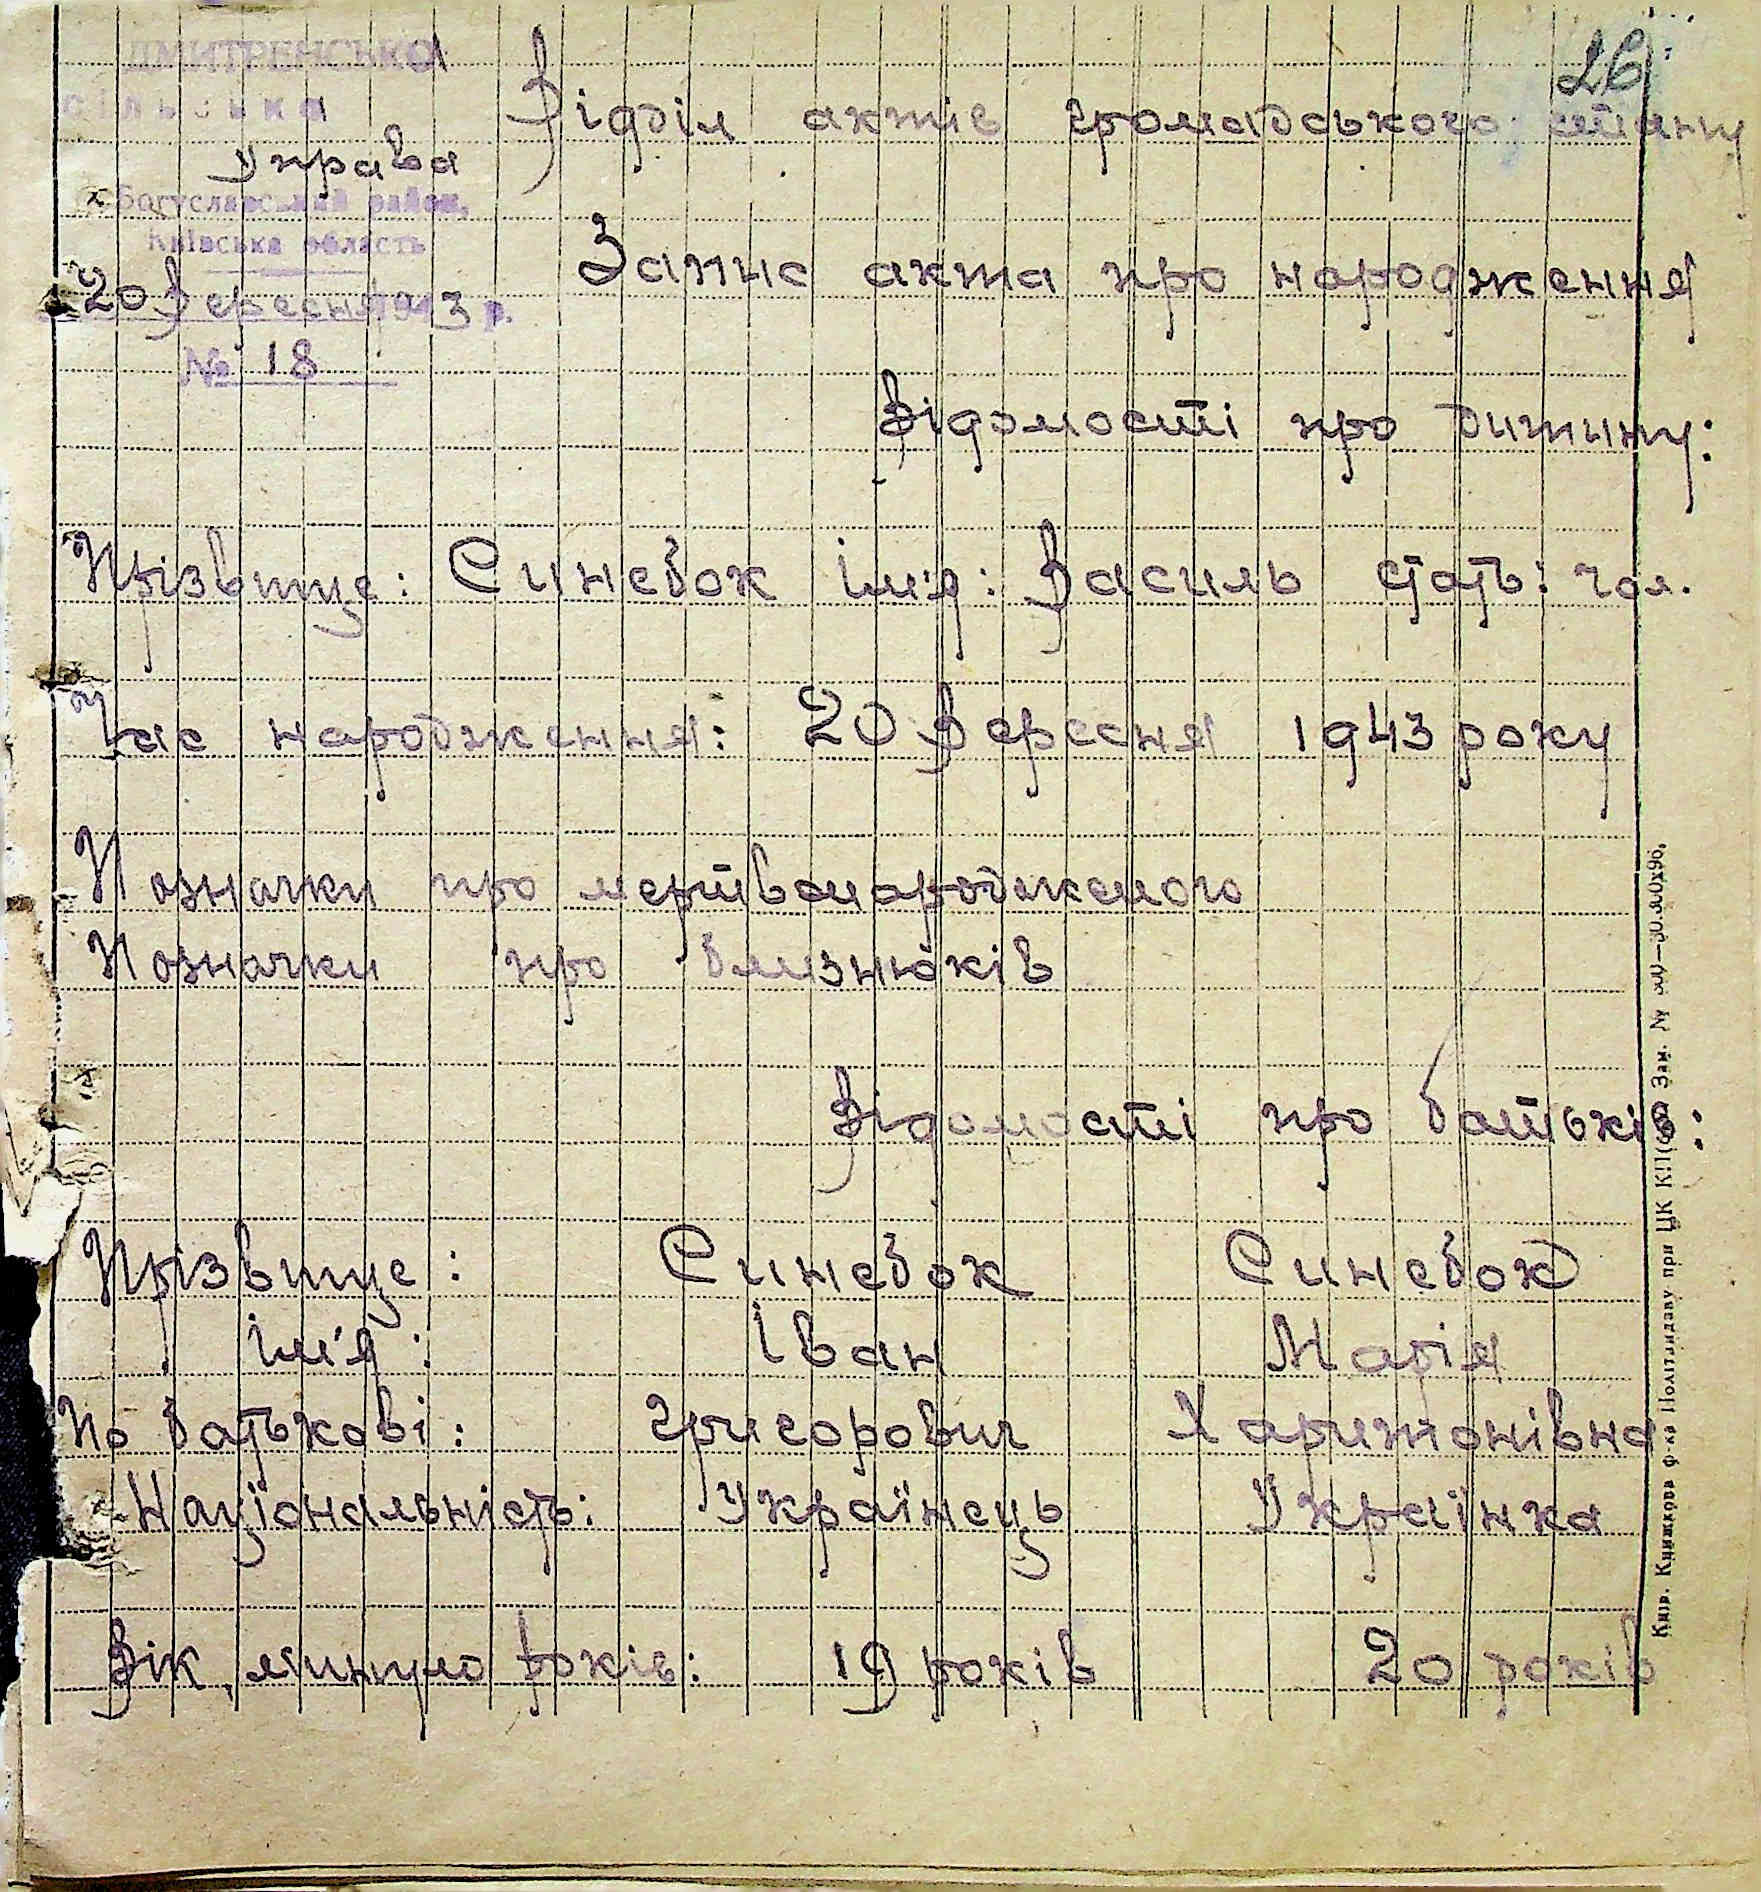 26
ДМИТРЕНСЬКА
сільська
Управа
Богуславський район,
Київська область
20 Вересня 1943 р.
№ 18
Відділ актів громадського стану
Запис акта про народження
Відомості про дитину:
Прізвище: Синебок Ім'я: Василь стать: чол.
Час народження: 20 Вересня 1943 року
Позначки про мертвонародженого
Позначки про близнюків
Відомості про батьків:
Прізвище: Синебок Синебок
Ім'я: Іван Марія
По батькові: Григорович Харитонівна
Національність: Українець Українка
Вік, минуло років: 19 років 20 років
Київ. Книжкова ф-ка Політвидаву при ЦК КП(б) Зам. №